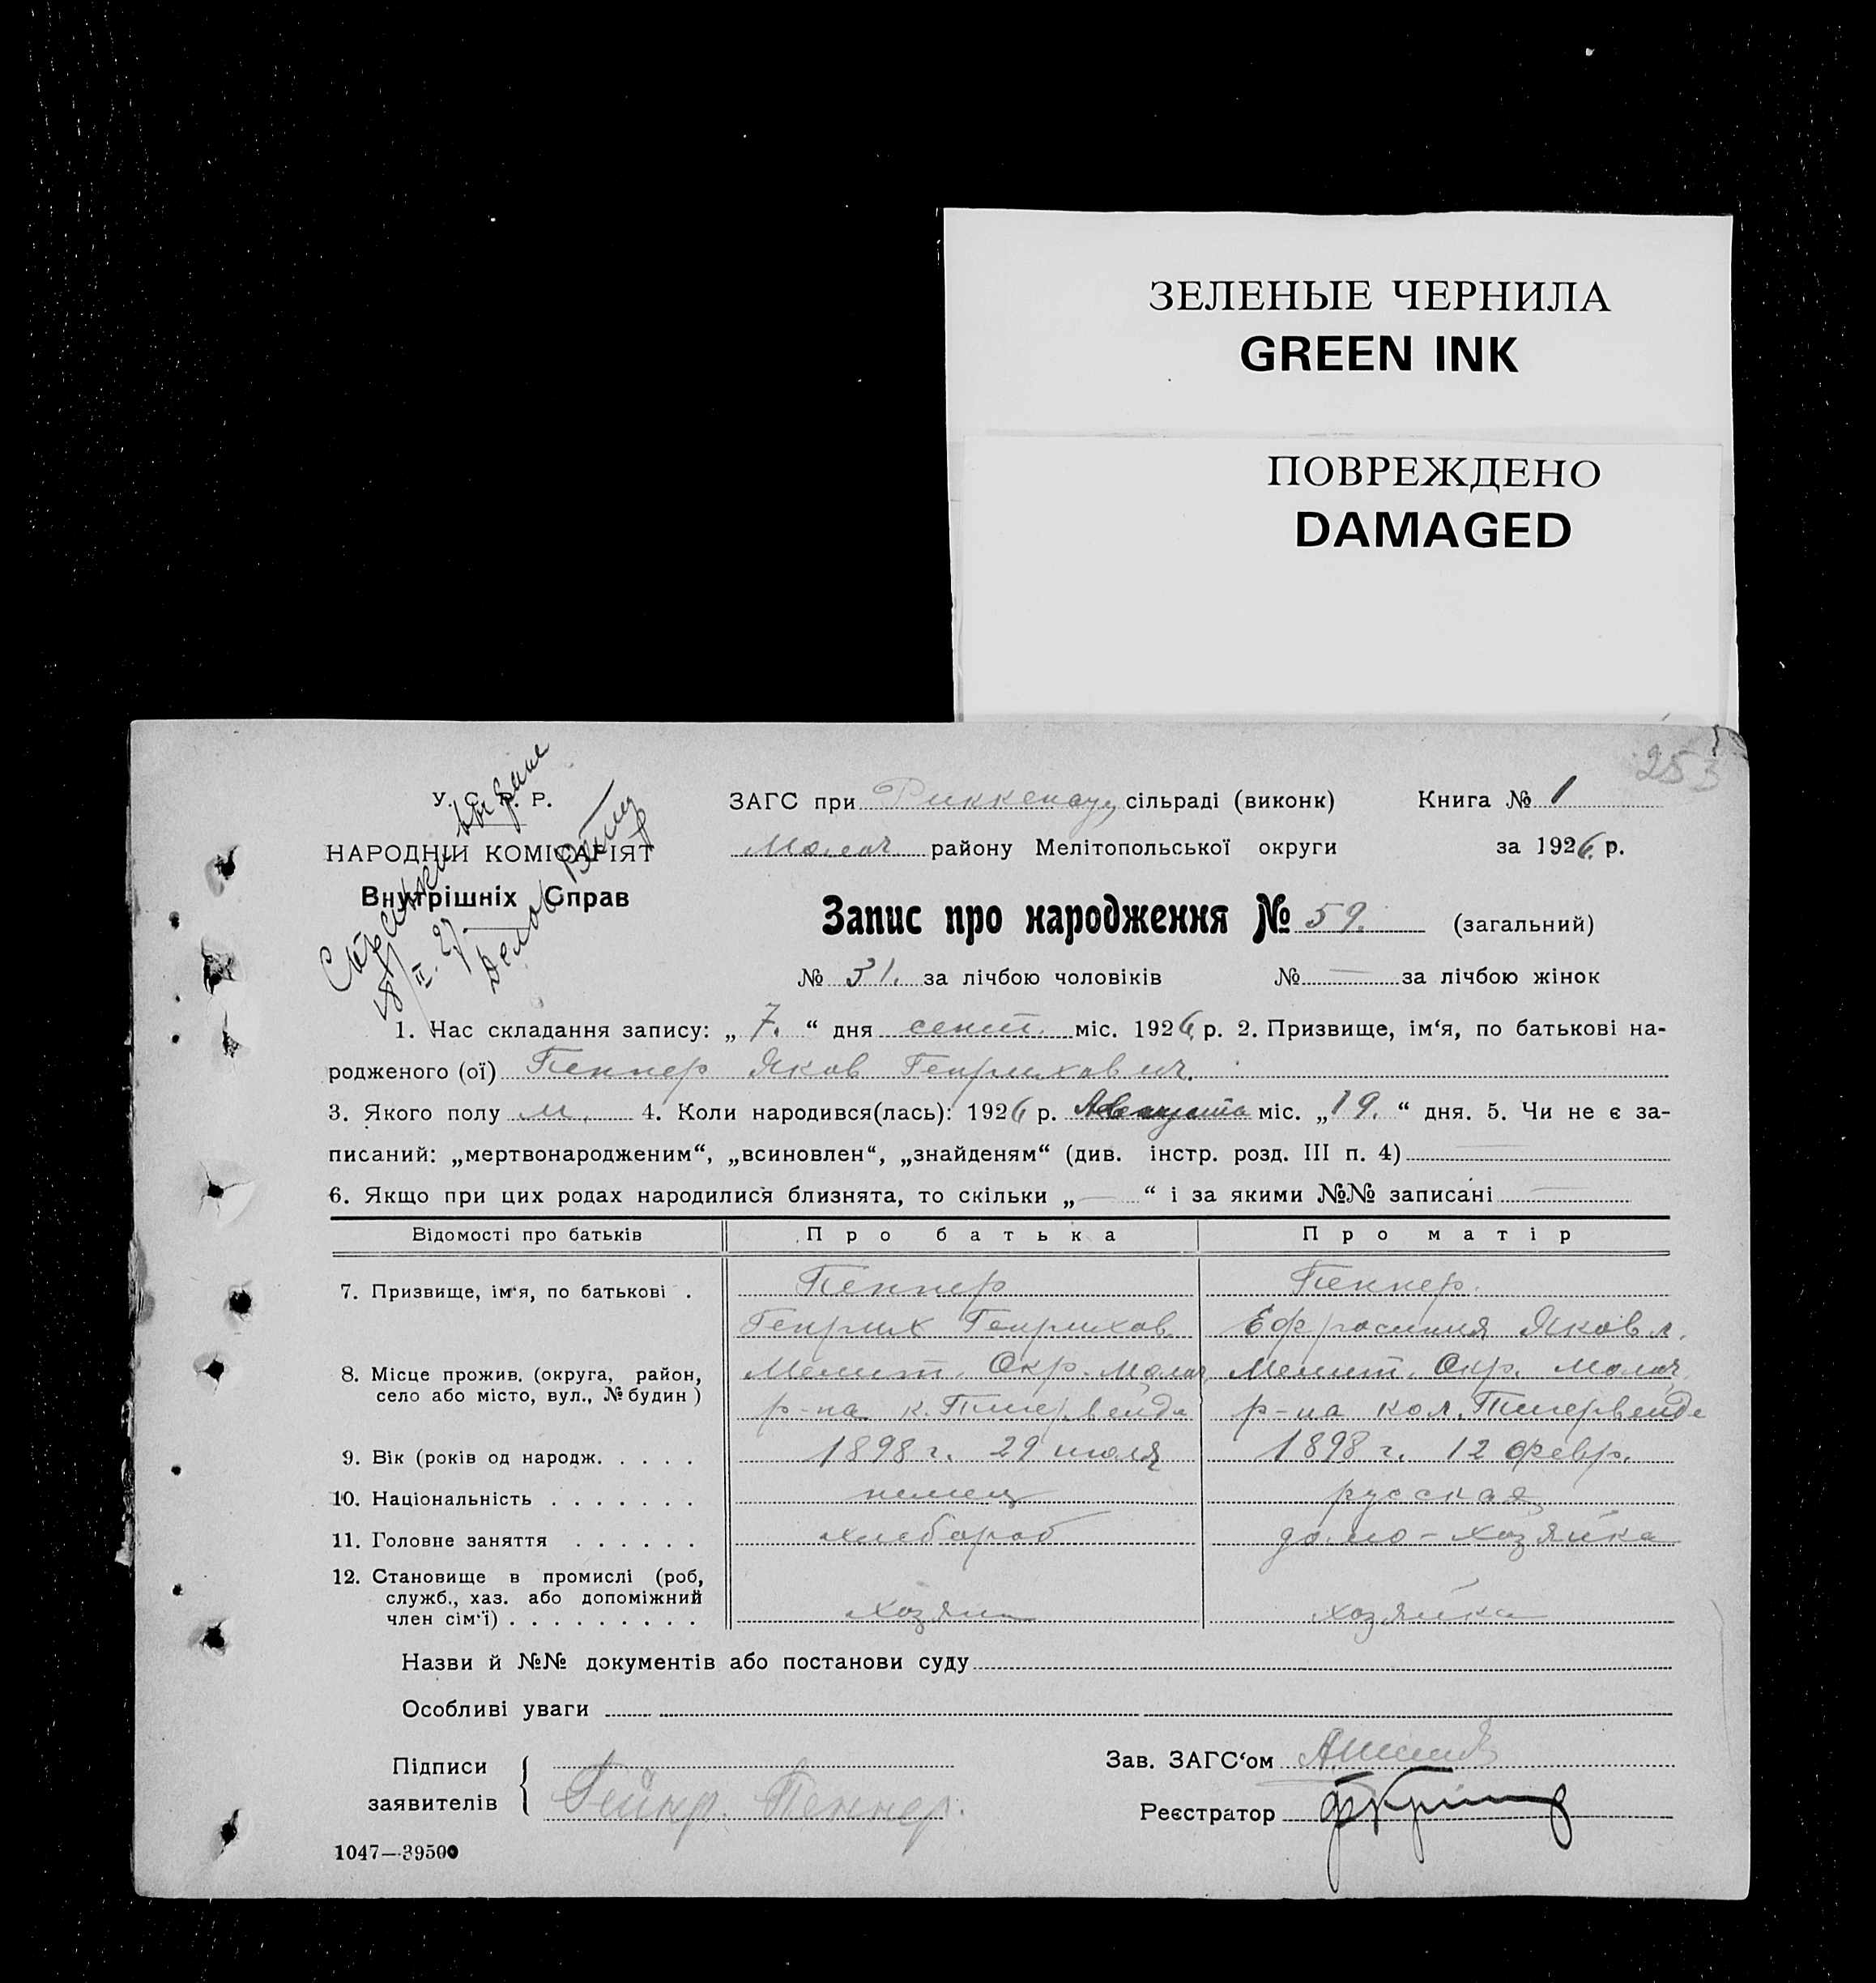 ЗЕЛЕНЫЕ ЧЕРНИЛА
GREEN INK
ПОВРЕЖДЕНО
DAMAGED
253
У. С. Р. Р.
НАРОДНІЙ КОМІСАРІЯТ
Внутрішніх Справ
ЗАГС при Риккенау, сільраді (виконк) Книга № 1
Молоч. району Мелітопольської округи за 1926 р.
Запис про народження № 59. (загальний)
№ 31. за лічбою чоловіків № — за лічбою жінок
1. Час складання запису: „ 7. “ дня сент. міс. 1926 р. 2. Призвище, ім‘я, по батькові на-
родженого (ої) Пеннер Яков Генрихович.
3. Якого полу м. 4. Коли народився(лась): 1926 р. Августа міс. „ 19. “ дня. 5. Чи не є за-
писаний: „мертвонародженим“, „всиновлен“, „знайденям“ (див. інстр. розд. III п. 4) —
6. Якщо при цих родах народилися близнята, то скільки „ — “ і за якими №№ записані —
Відомості про батьків Про батька Про матір
7. Призвище, ім‘я, по батькові . Пеннер Пеннер.
Генрих Генрихов. Ефросиния Яковл.
8. Місце прожив. (округа, район, Мелит. Окр. Молоч. Мелит. Окр. Молоч.
село або місто, вул., № будин ) р-на к. Тигервейде р-на кол. Тигервейде
9. Вік (років од народж. . . . . 1898 г. 29 июля 1898 г. 12 февр.
10. Національність . . . . . . . немец русская
11. Головне заняття . . . . . . хлебороб домо-хозяйка
12. Становище в промислі (роб,
служб., хаз. або допоміжний
член сім‘ї) . . . . . . . . . хозяин хозяйка
Назви й №№ документів або постанови суду
Особливі уваги
Підписи
заявителів Гейнр. Пеннер.
Зав. ЗАГС‘ом
Реєстратор
1047—39500